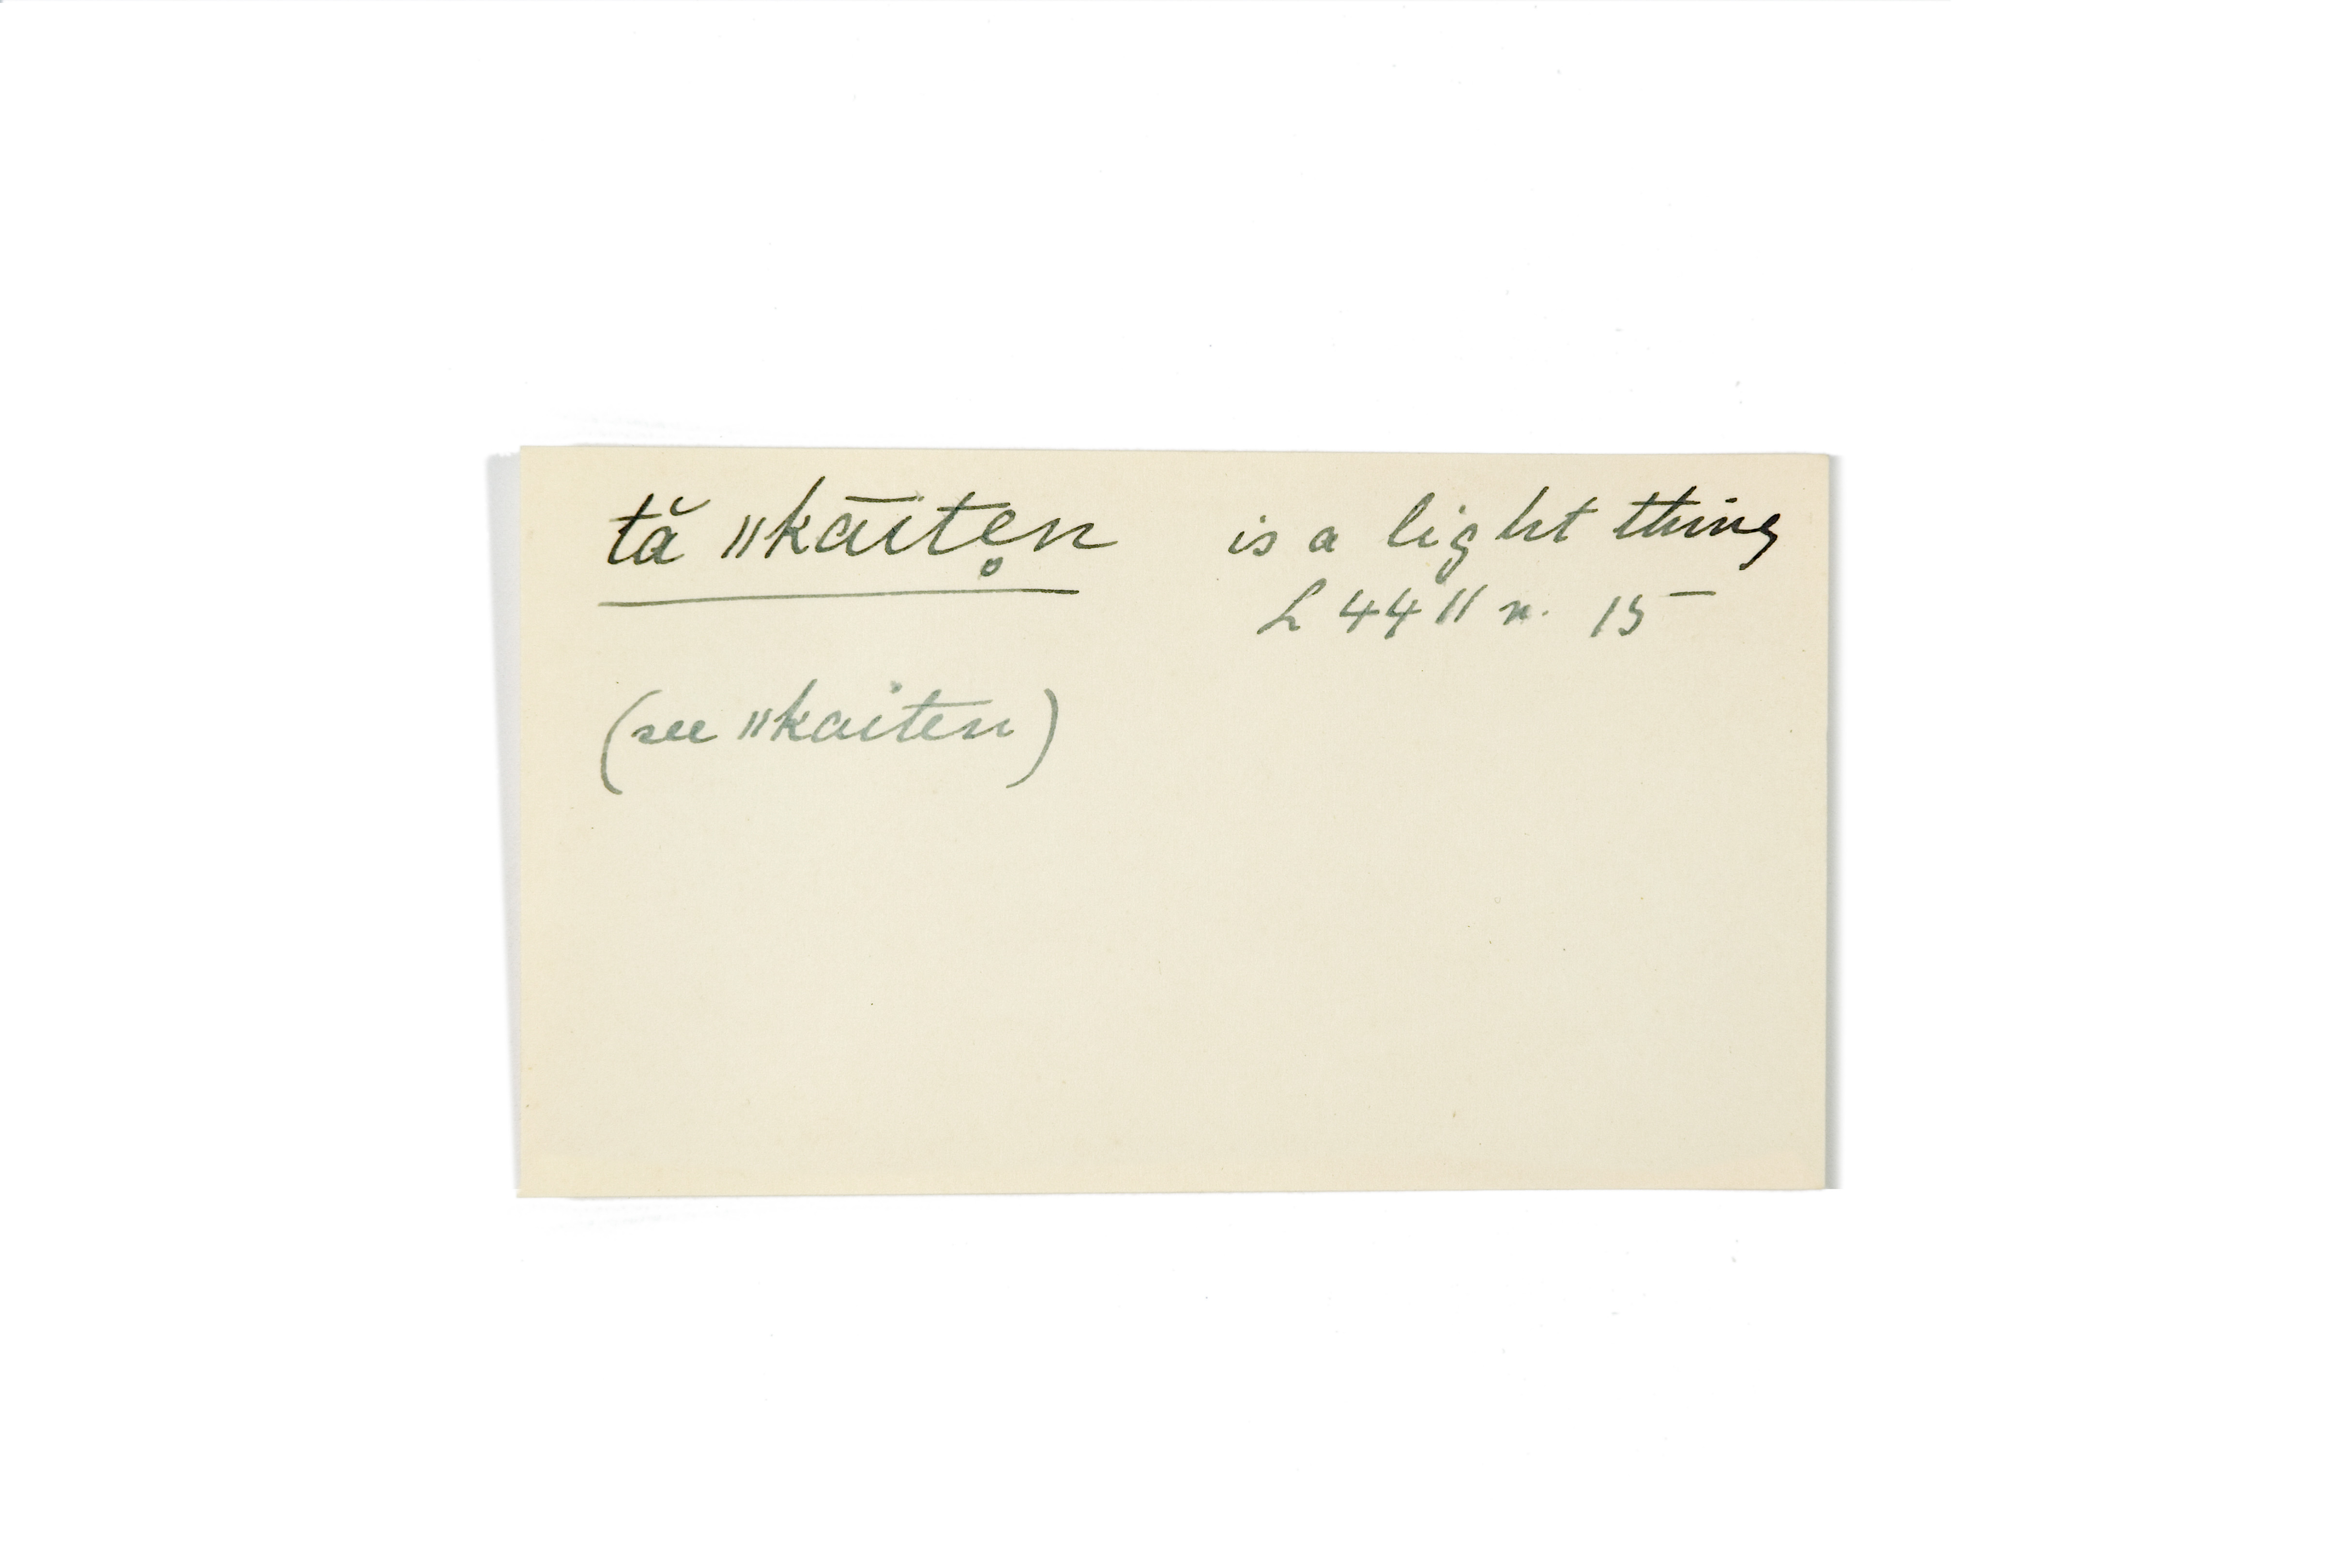 tă ǁkāite̥n is a light thing
L 4411 n. 15
(see ǁkaiten)